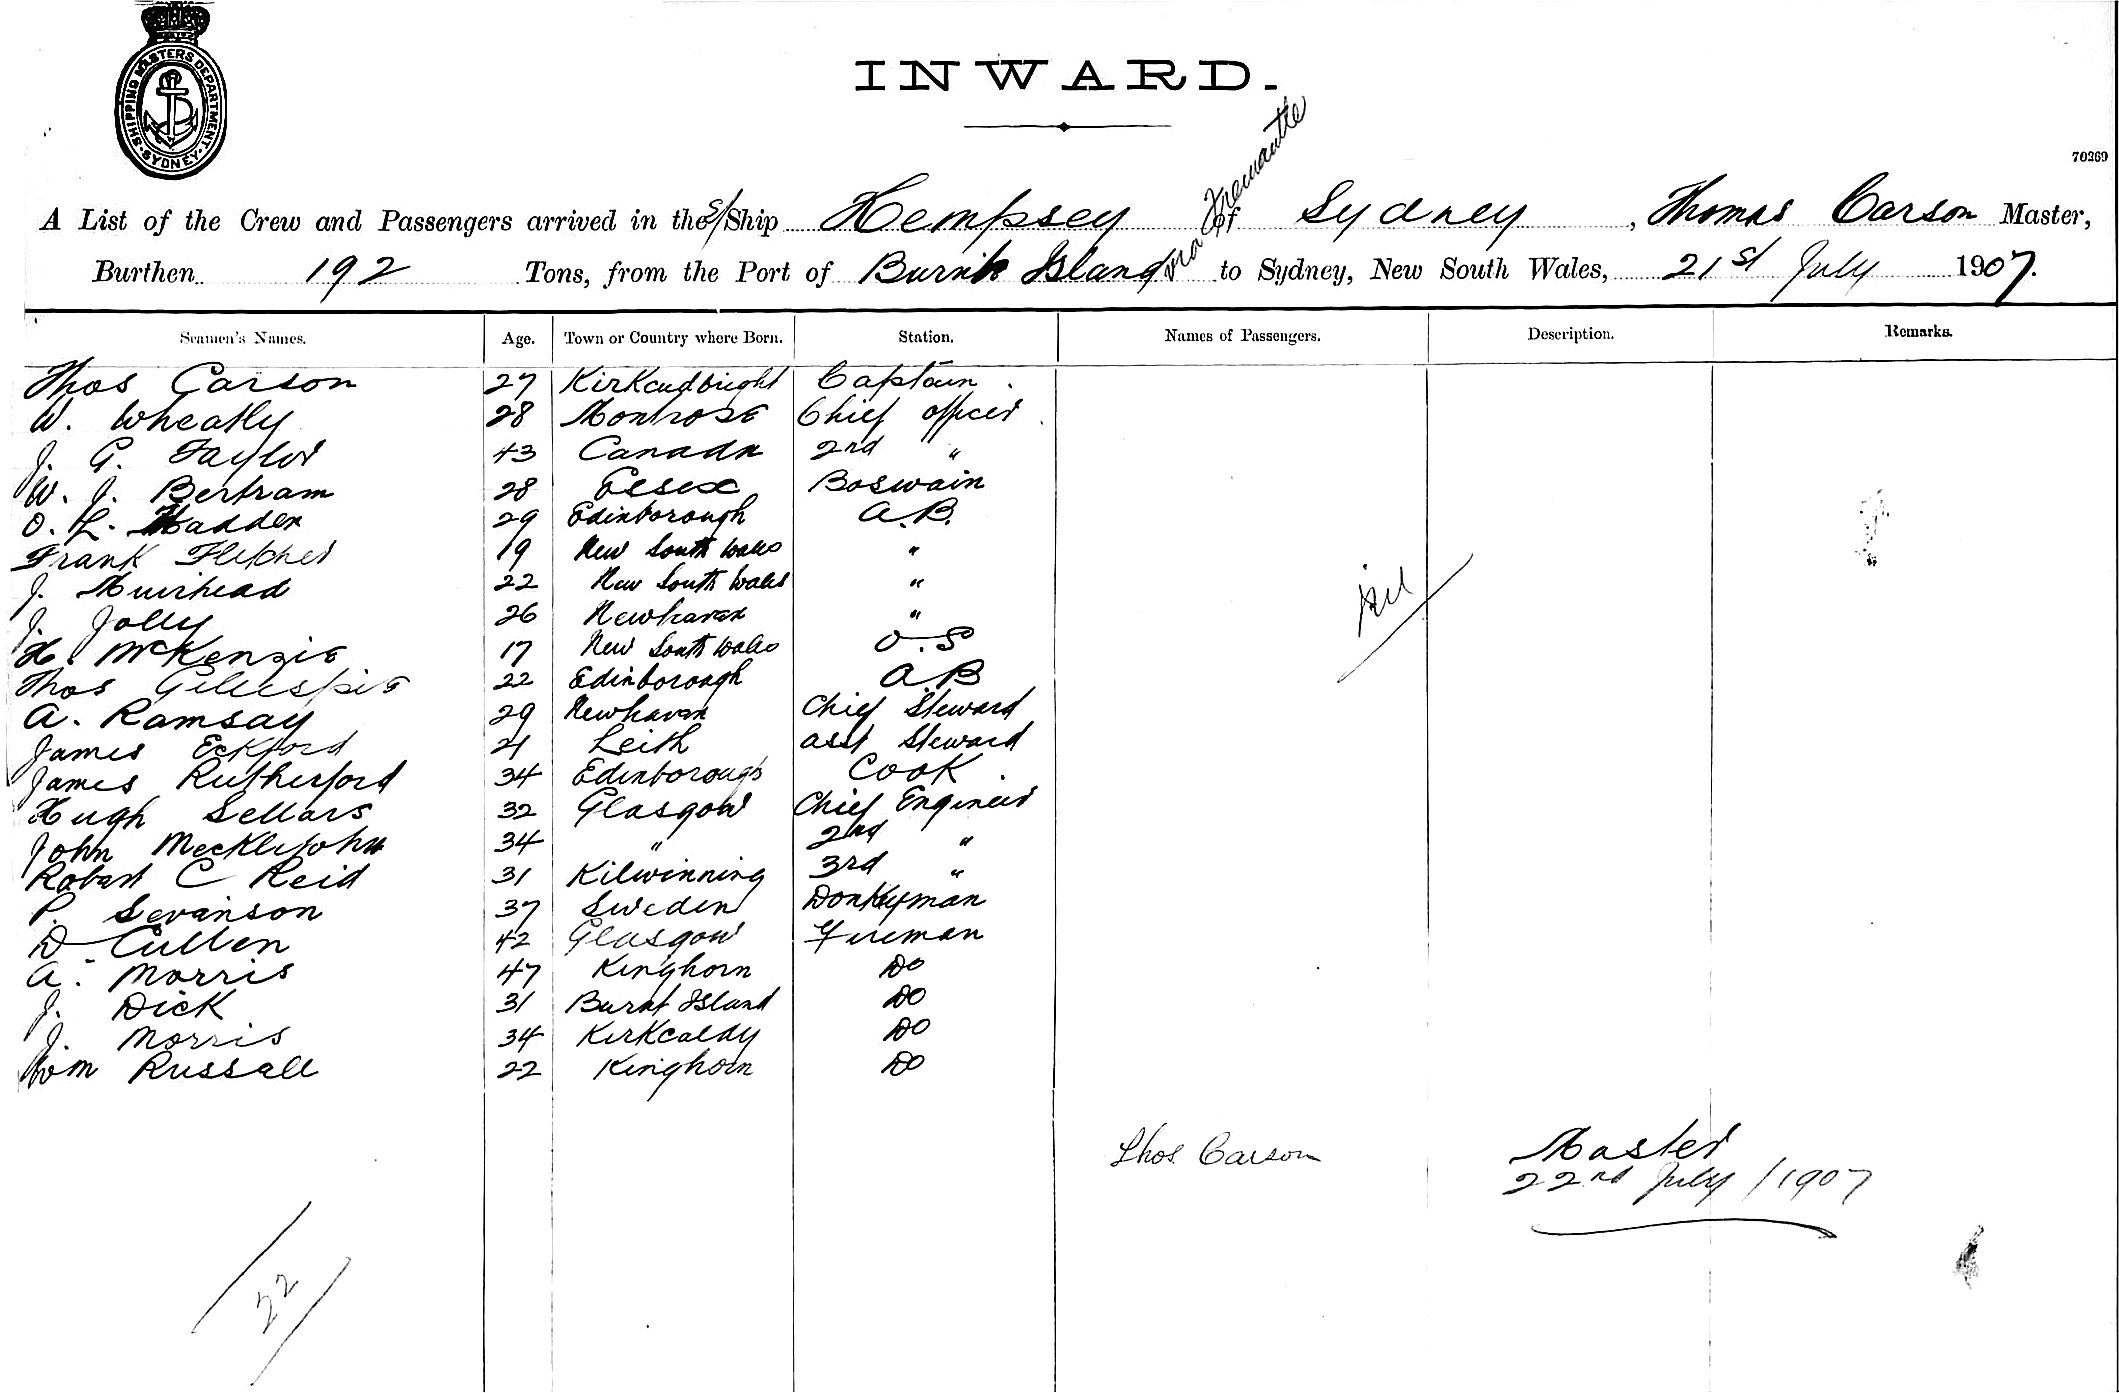 SHIPPING MASTERS DEPARTMENT. SYDNEY.
INWARD.
70269
A List of the Crew and Passengers arrived in the S/Ship Kempsey of Sydney, Thomas Carson Master,
via Fremantle
Burthen 192 Tons, from the Port of Burnt Island to Sydney, New South Wales, 21st July 1907.
Seamen's Names. Age. Town or Country where Born. Station. Names of Passengers. Description. Remarks.
Thos Carson 27 Kirkcudbright Captain
W. Wheatly 28 Montrose Chief officer
J. G. Taylor 43 Canada 2nd "
W. J. Bertram 28 Essex Boswain
O. L. Hadden 29 Edinborough A.B.
Frank Fletcher 19 New South Wales "
J. Muirhead 22 New South Wales "
J. Jolly 26 Newhaven "
H. McKenzie 17 New South Wales O.S
Thos Gillespie 22 Edinborough A.B
A. Ramsay 29 Newhaven Chief Steward
James Eckford 21 Leith asst Steward
James Rutherford 34 Edinborough Cook
Hugh Sellars 32 Glasgow Chief Engineer
John Mecklejohn 34 " 2nd "
Robert C Reid 31 Kilwinning 3rd "
P. Swanson 37 Sweden Donkyman
D Cullen 42 Glasgow Fireman
A. Morris 47 Kinghorn Do
J. Dick 31 Burnt Island Do
J. Morris 34 Kirkcaldy Do
Wm Russall 22 Kinghorn Do
nil
Thos Carson Master
22nd July / 1907
22